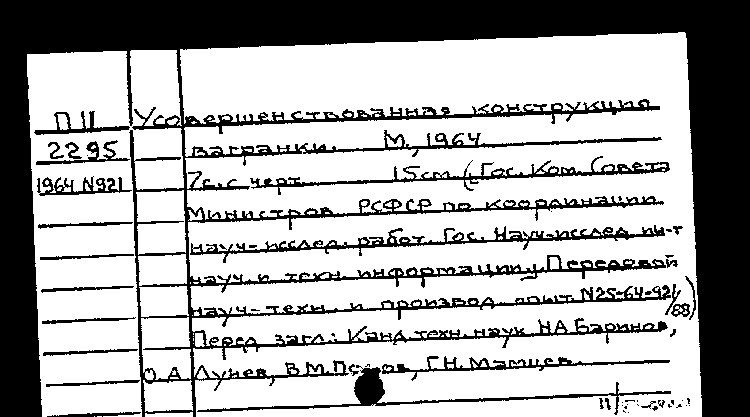 П II Усовершенствованная конструкция
2295 вагранки. М., 1964
1964 N921 7с. с черт. 15см (Гос. Ком. Совета
Министров РСФСР по координации
науч-исслед. работ. Гос. Науч-исслед ин-т
науч. и техн. информации. Передовой
науч-техн. и производ. опыт N25-64-921/88)
Перед загл: Канд. техн. наук Н.А. Баринов,
О.А. Лунев, В.М. Г.Н. Мамцев.